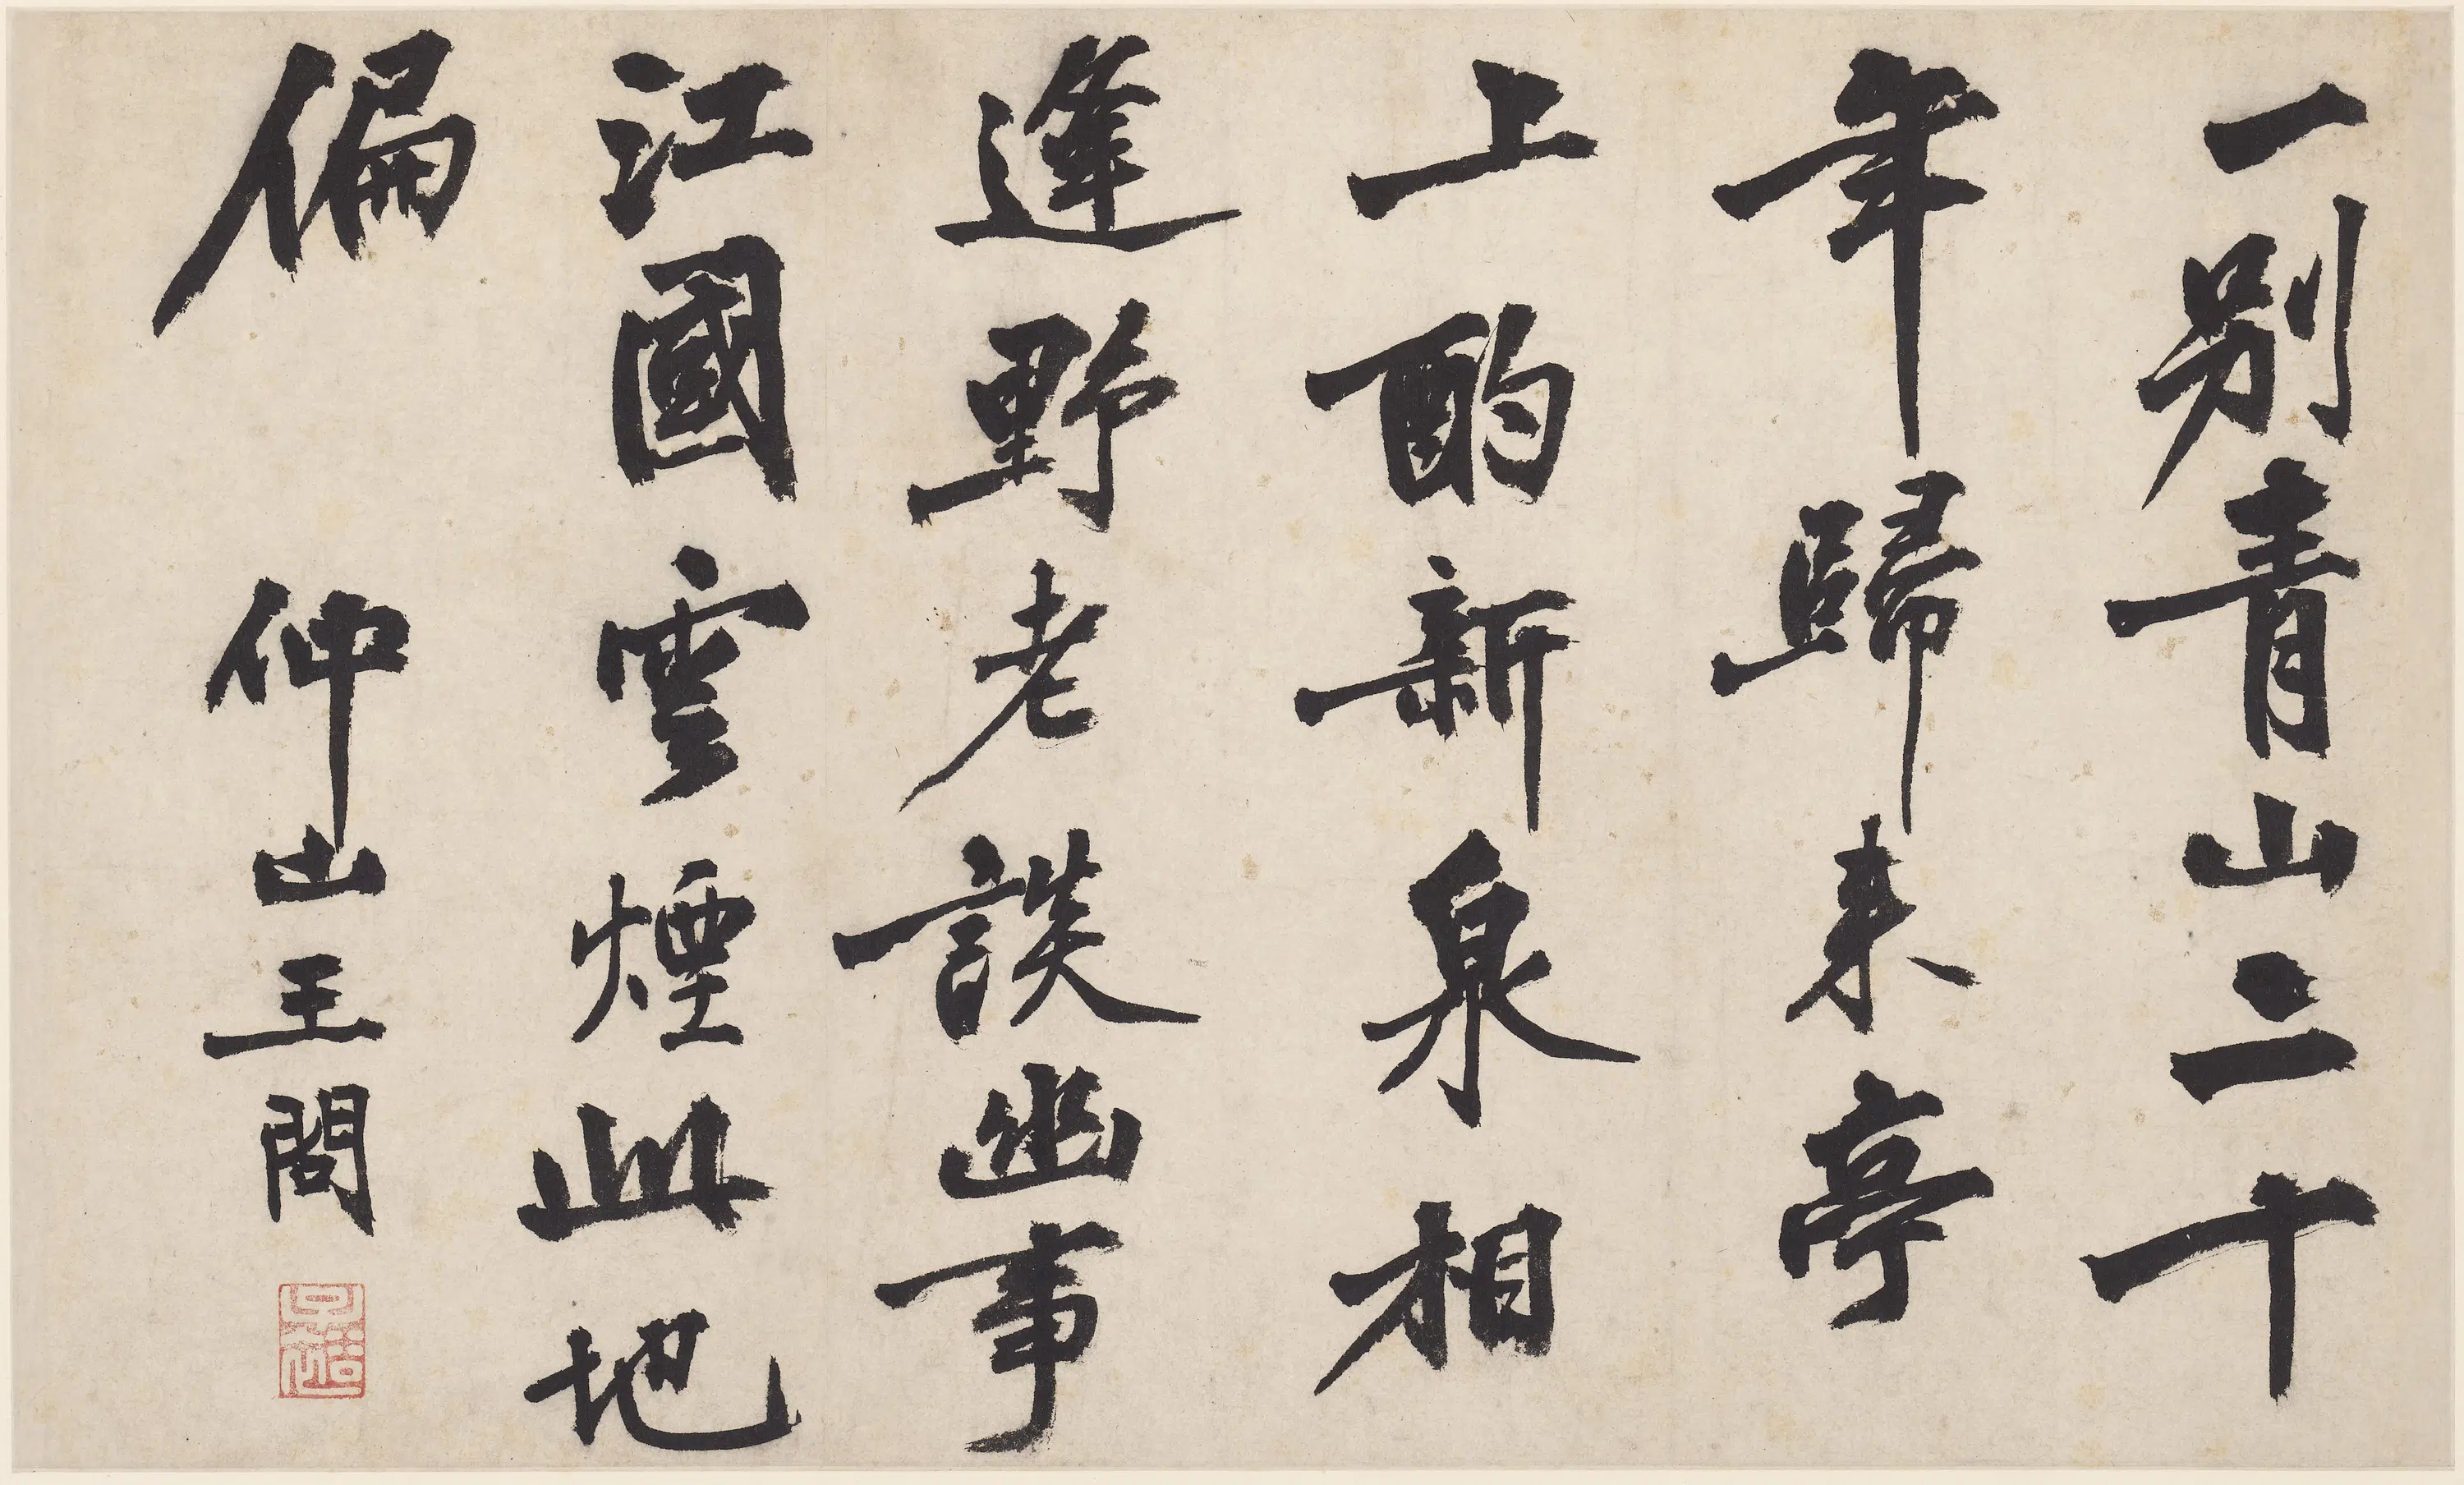 一别青山二十
年歸来亭
上酌新泉相
逢野老談幽事
江國雲煙此地
偏
仲山王問